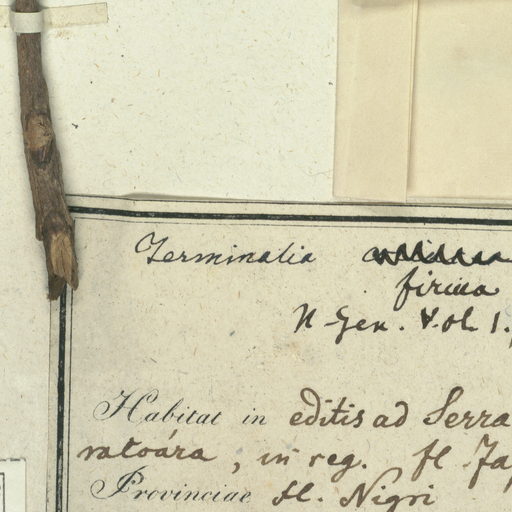 Terminalia
firma
N. Gen. Vol. 1.
Habitat in editis ad Serra
ratoára, in reg. fl. Ja
Provinciae fl. Nigri